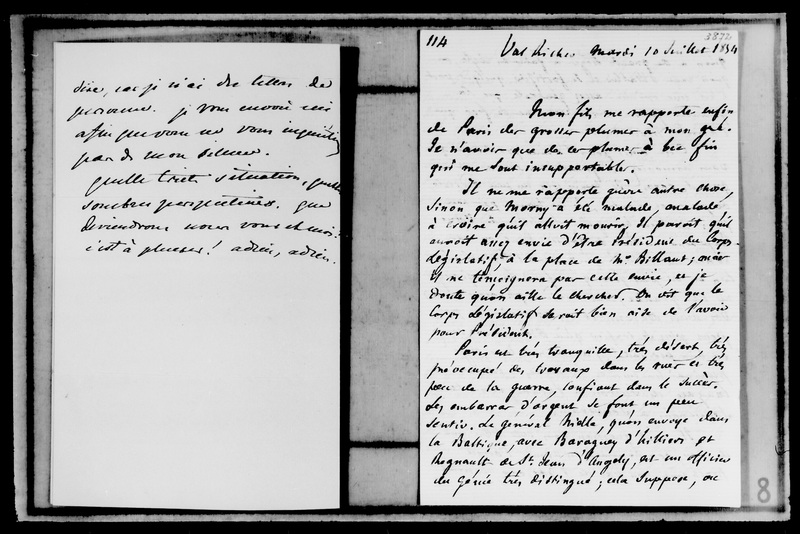 dire, car je n'ai des lettres de
personne. je vous envoie ceci
afin que vous ne vous inquiétiez
pas de mon silence.
quelle triste situation, quelle
sombres perspectives. que
deviendrons nous vous et moi.
c'est à pleurer! adieu, adieu.
114
3872
Val Richer Mardi 10 Juillet 1854
Mon fils me rapporte enfin
de Paris des grosses plumes à mon gré.
Je n'avois que de ces plumes à bec fin
qui me sont insupportables.
Il ne me rapporte guère autre chose,
sinon que Morny a été malade, malade
à croire qu'il alloit mourir. Il paroit qu'il
auroit assez envie d'être Président du Corps
législatif, à la place de Mr. Billaut; mais
il ne témoignera pas cette envie, et je
doute qu'on aille le chercher. On dit que le
Corps législatif seroit bien aise de l'avoir
pour Président.
Paris est très tranquille, très désert, très
préoccupé des travaux dans les rues et très
peu de la guerre, confiant dans le succès.
Les embarras d'argent se font un peu
sentir. Le général Niel, qu'on envoye dans
la Baltique, avec Baraguey d'hilliers et
Regnault de St. Jean d'Angely, est un officier
du génie très distingué; cela suppose, ou
8